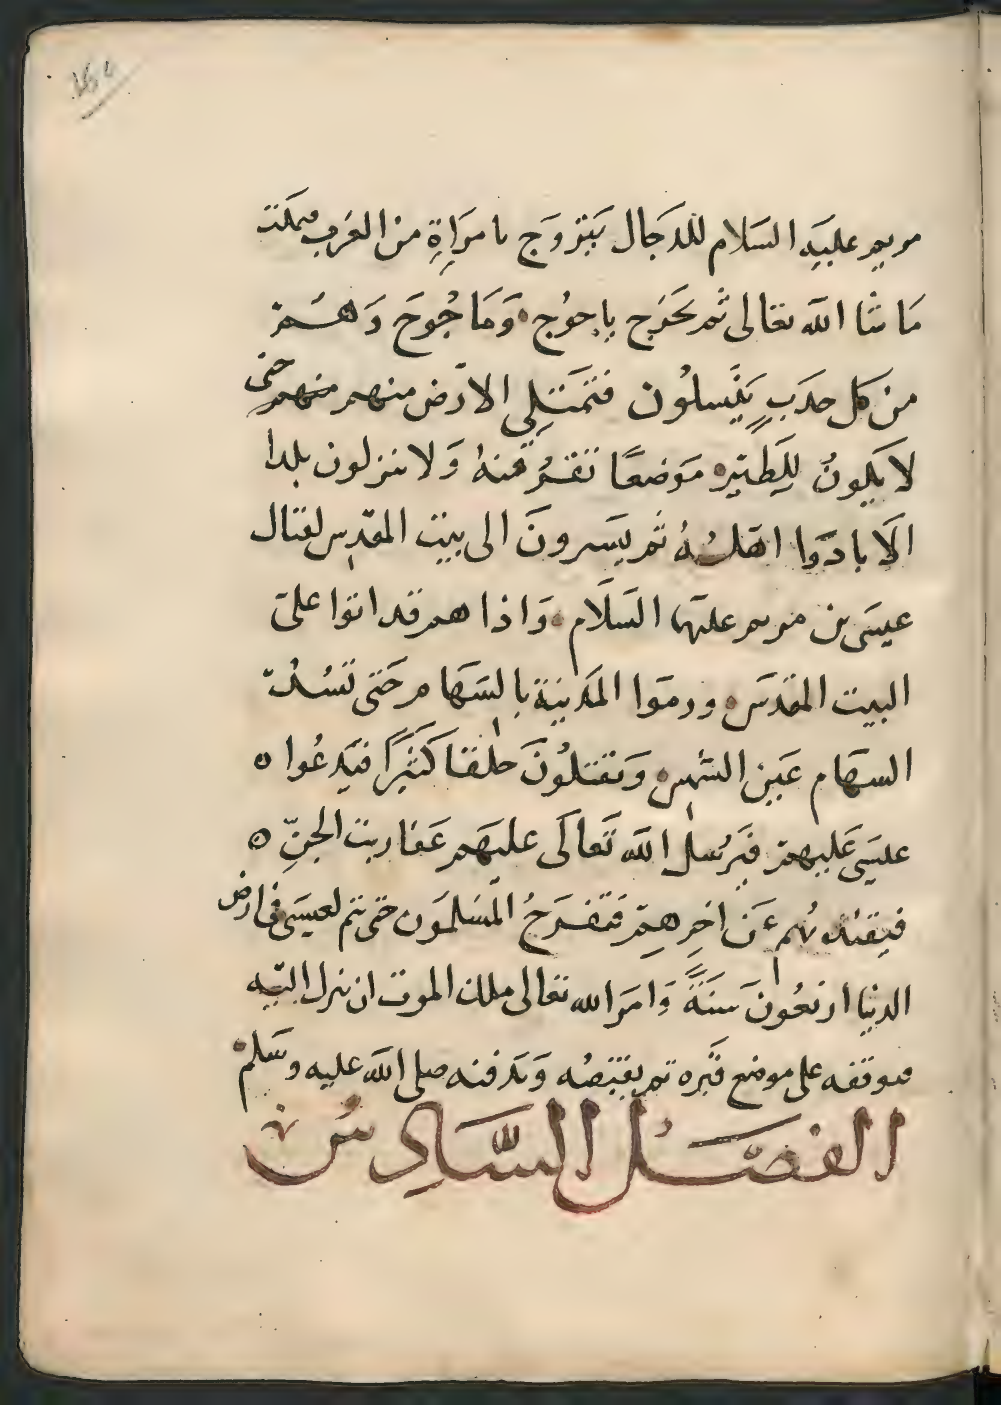 مريم عليه السلام للدجال يتزوج بامراة من العرب فيمكث
ما شا الله تعالى ثم يخرج ياجوج وماجوج وهم
من كل حدب ينسلون فتمتلي الارض منهم منهم حتى
لا يكون للطير موضعا تفر منه ولا ينزلون بلدا
الا بادوا اهله ثم يسيرون الى بيت المقدس لقتال
عيسى بن مريم عليهما السلام واذا هم قد اتوا على
البيت المقدس ورموا المدينة بالسهام حتى تسد
السهام عين الشمس ويقتلون خلقا كثيرا فيدعوا
عيسى عليهم فيرسل الله تعالى عليهم عفاريت الجن
فيقتلوهم عن اخرهم فتفرح المسلمون حتى يتم لعيسى في ارض
الدنيا اربعون سنة وامر الله تعالى ملك الموت ان ينزل اليه
فيوقفه على موضع قبره ثم يقبضه ويدفنه صلى الله عليه وسلم
الفصل السادس